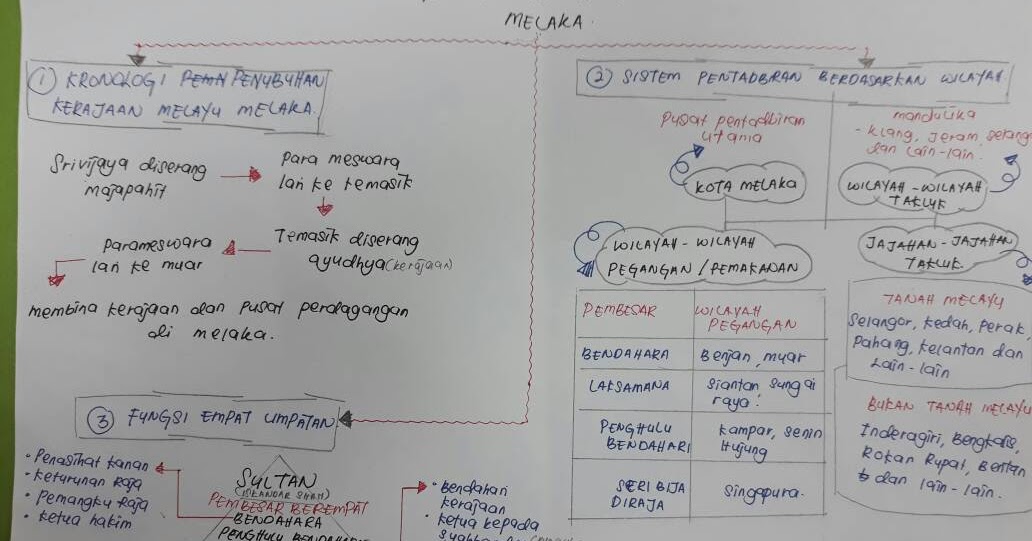 MELAKA.
① KRONOLOGI PENUBUHAN
KERAJAAN MELAYU MELAKA.
Srivijaya diserang
majapahit
Para meswara
lari ke temasik
Temasik diserang
ayudhya (kerajaan)
Parameswara
lari ke muar
membina kerajaan dan pusat perdagangan
di melaka.
② SISTEM PENTADBIRAN BERDASARKAN WILAYAH.
Pusat pentadbiran
utama
KOTA MELAKA
mandulika
- Klang, Jeram, Selang
dan lain-lain.
WILAYAH - WILAYAH
TAKLUK
WILAYAH - WILAYAH
PEGANGAN / PEMAKANAN
PEMBESAR
WILAYAH
PEGANGAN
BENDAHARA
Bentan, muar
LAKSAMANA
Siantan, Sungai
raya.
PENGHULU
BENDAHARI
Kampar, Senin
Hujung
SERI BIJA
DIRAJA
Singapura.
JAJAHAN - JAJAHAN
TAKLUK.
TANAH MELAYU
Selangor, Kedah, Perak,
Pahang, Kelantan dan
Lain-lain
BUKAN TANAH MELAYU
Inderagiri, Bengkalis,
Rokan, Rupat, Bentan
dan lain-lain.
③ FUNGSI EMPAT LIPATAN
• Penasihat kanan
• Keturunan Raja
• Pemangku Raja
• Ketua hakim
SULTAN
(ISKANDAR SHAH)
PEMBESAR BEREMPAT
BENDAHARA
PENGHULU BENDAHARI
• bendahari
kerajaan
• Ketua kepada